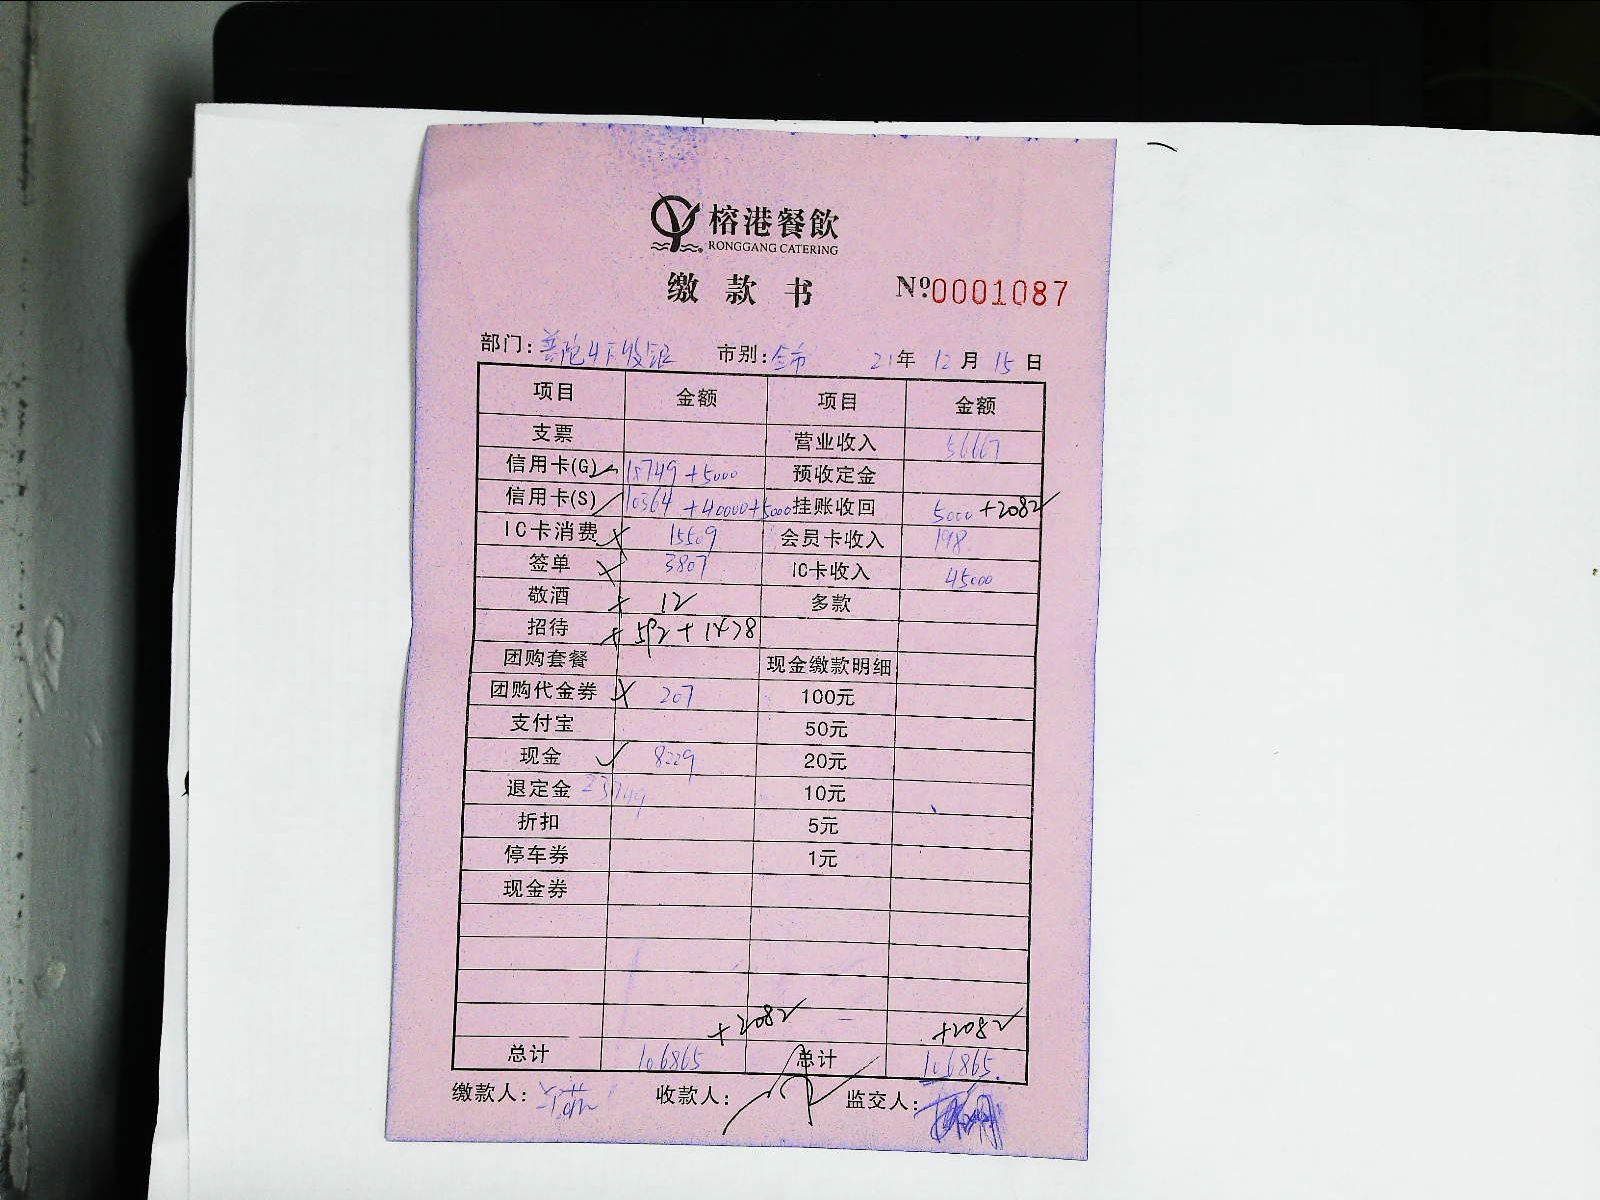 榕港餐飲
RONGGANG CATERING
缴款书 Nº 0001087
部门: 普陀4F收银 市别: 全市 21年 12月 15日
项目 金额 项目 金额
支票 营业收入 56667
信用卡(G) 18749 +5000 预收定金
信用卡(S) 10364 +40000+5000 挂账收回 5000 +2082
IC卡消费 15509 会员卡收入 198
签单 3807 IC卡收入 45000
敬酒 + 12 多款
招待 + 592 + 1478
团购套餐 现金缴款明细
团购代金券 207 100元
支付宝 50元
现金 8229 20元
退定金 23749 10元
折扣 5元
停车券 1元
现金券
+2082 +2082
总计 106865 总计 106865
缴款人: 收款人: 监交人: